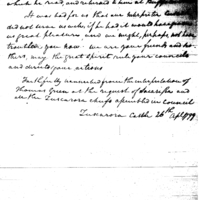 which he read and
It was bad for us that our interpreter
did not come as early, if he had it would have given
us great pleasure, and we might, perhaps not have
troubled you now. we are your friends and
thers, may the great spirit rule your councils
and direct your actions
Faithfully from the interpretation of
Thomas Green at the request of Sacarissa and
all the Tuscarora chiefs assembled in Council
Tuscarora Castle 26th Apl